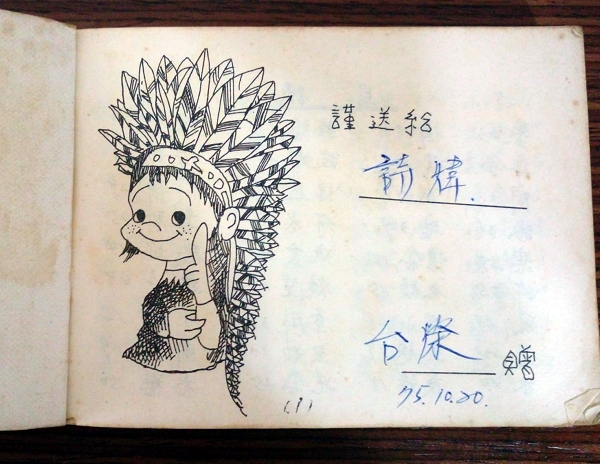 謹送給
詩煒.
台榮 贈
75.10.20.
(1)